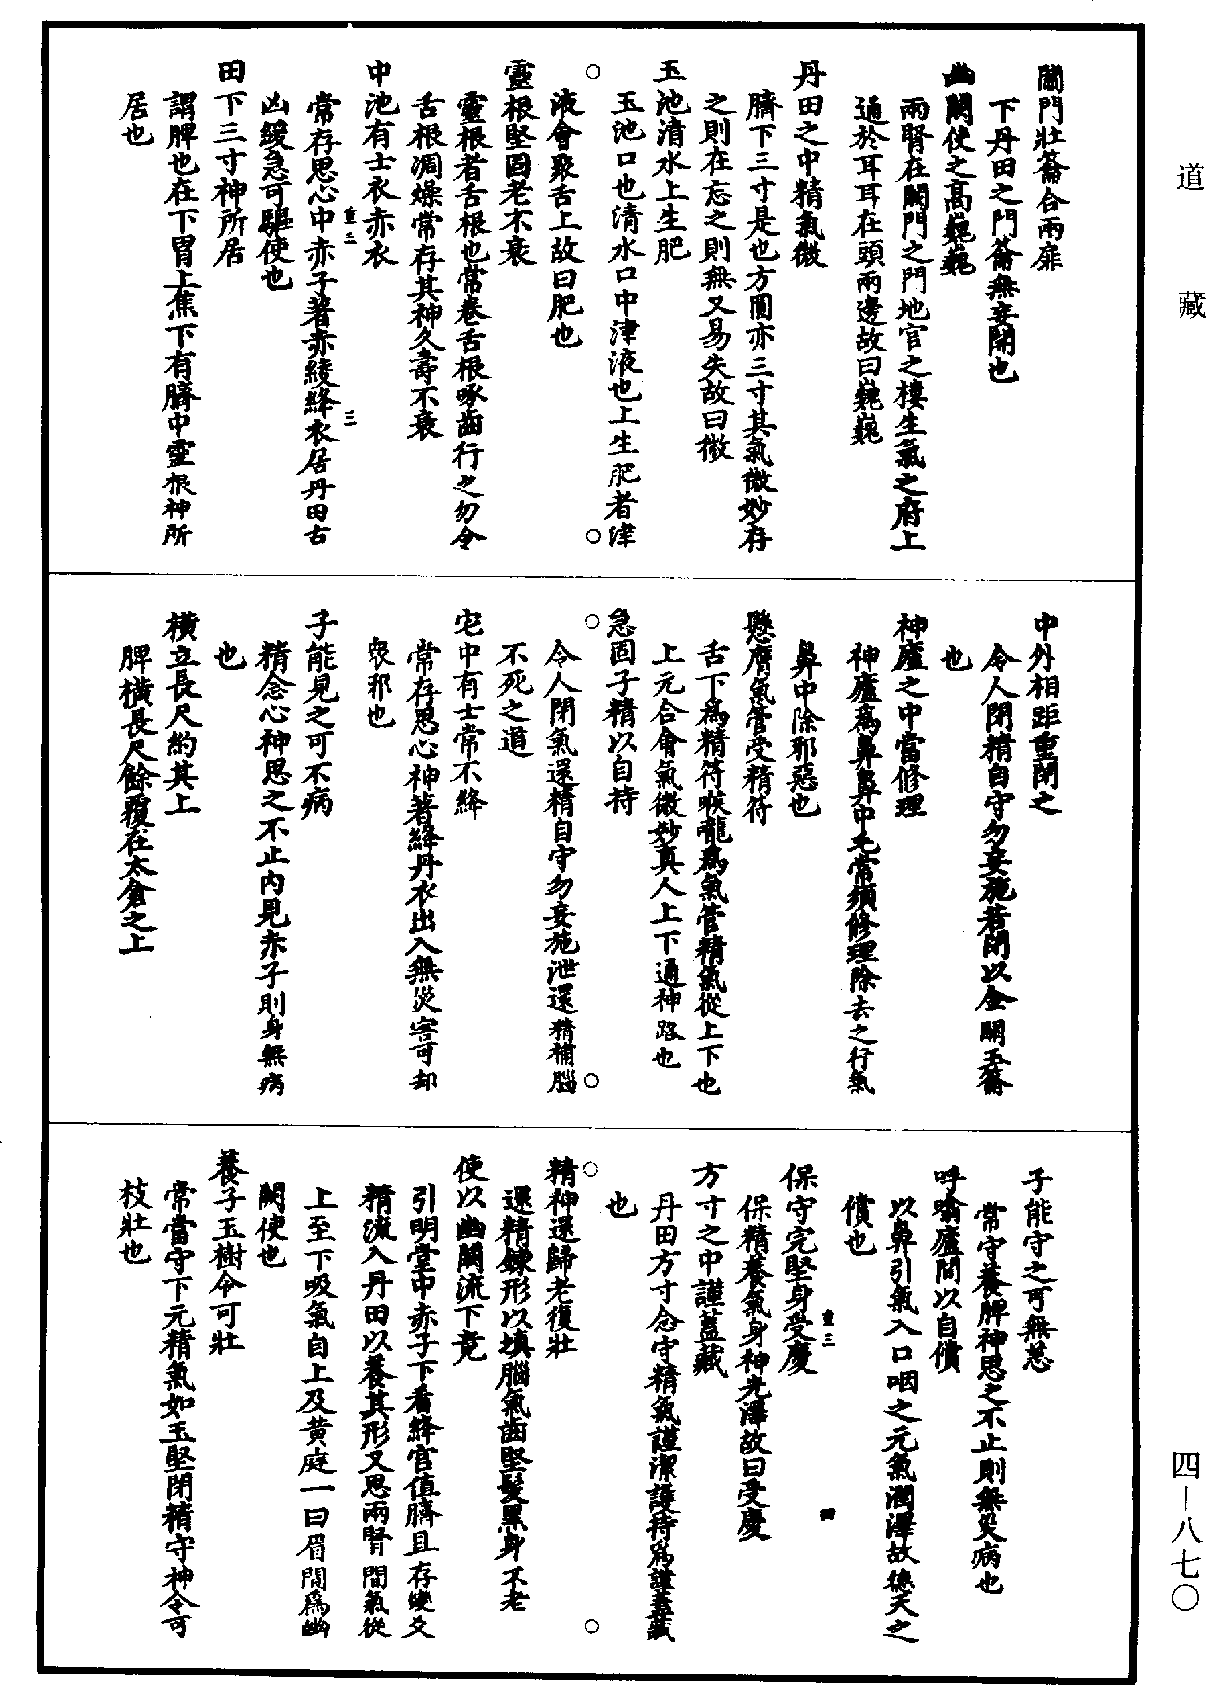 道藏
關門壯籥合兩扉
下丹田之門籥無妄開也
幽闕使之高巍巍
兩腎在闕門之門地官之樓生氣之府上
通於耳耳在頭兩邊故曰巍巍
丹田之中精氣微
臍下三寸是也方圓亦三寸其氣微妙存
之則在忘之則無又易失故曰微
玉池清水上生肥
玉池口也清水口中津液也上生肥者津
液會聚舌上故曰肥也
靈根堅固老不衰
靈根者舌根也常卷舌根啄齒行之勿令
舌根凋燥常存其神久壽不衰
中池有士衣赤衣
常存思心中赤子著赤綾絳衣居丹田古
凶緩急可驅使也
田下三寸神所居
謂脾也在下胃上焦下有臍中靈根神所
居也
中外相距重閉之
令人閉精自守勿妄施若閉以金關玉籥
也
神廬之中當修理
神廬為鼻鼻中毛常須修理除去之行氣
鼻中除邪惡也
懸膺氣管受精符
舌下為精符喉嚨為氣管精氣從上下也
上元合會氣微妙真人上下通神路也
急固子精以自持
令人閉氣還精自守勿妄施泄還精補腦
不死之道
宅中有士常衣絳
常存思心神著絳丹衣出入無災害可却
衆邪也
子能見之可不病
精念心神思之不止內見赤子則身無病
也
橫立長尺約其上
脾橫長尺餘覆在太倉之上
子能守之可無恙
常守養脾神思之不止則無災病也
呼噏廬間以自償
以鼻引氣入口咽之元氣潤澤故德天之
償也
保守完堅身受慶
保精養氣身神光澤故曰受慶
方寸之中謹蓋藏
丹田方寸念守精氣謹潔護持為謹蓋藏
也
精神還歸老復壯
還精鍊形以填腦氣齒堅髮黑身不老
使以幽闕流下竟
引明堂中赤子下看絳宮值臍且存變父
精流入丹田以養其形又思兩腎間氣從
上至下吸氣自上及黃庭一曰眉間為幽
闕使也
養子玉樹令可壯
常當守下元精氣如玉堅閉精守神令可
枝壯也
四—八七〇